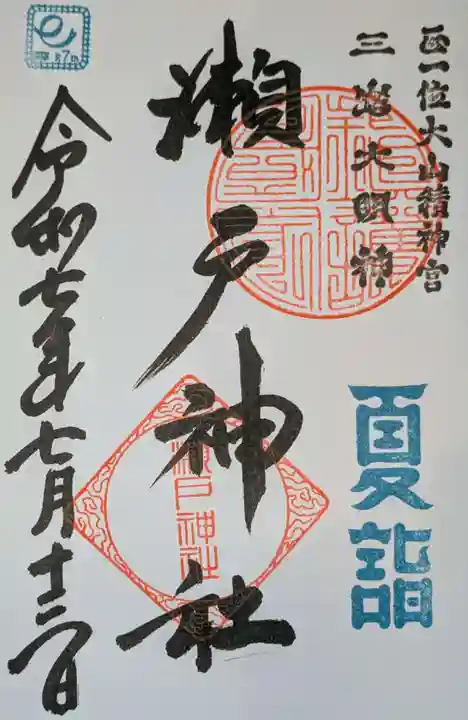 正一位大山積神宮
三島大明神
夏詣
瀬戸神社
瀬戸神社
令和七年七月十二日